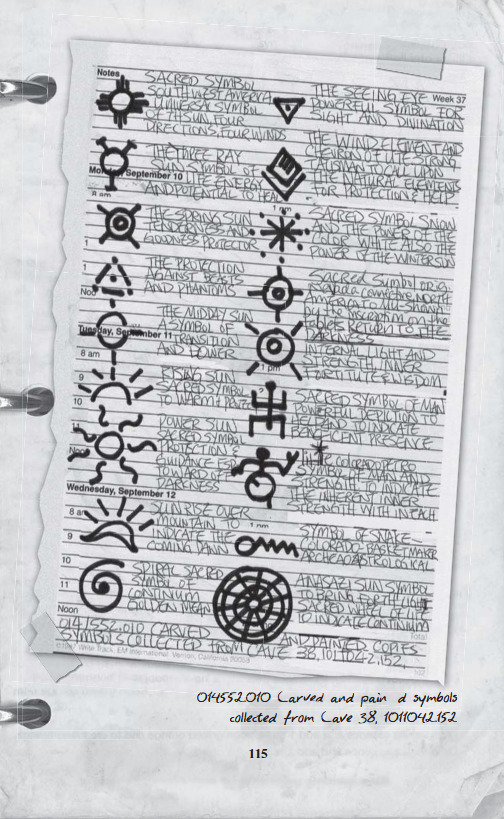 Notes
Week 37
SACRED SYMBOL
SOUTHWEST AMERICA
UNIVERSAL SYMBOL
OF THE SUN. FOUR
DIRECTIONS, FOUR WINDS
THE SEEING EYE
POWERFUL SYMBOL FOR
SIGHT AND DIVINATION
THE THREE RAY
SUN SYMBOL OF
LIFE ENERGY
AND POTENTIAL TO HEAL
Monday, September 10
8 am
THE WIND ELEMENT AND
CHEVRON OF LIFE STRONG
TALISMAN TO CALL UPON
THE NATURAL ELEMENTS
FOR PROTECTION & HELP
1 pm
THE SPRING SUN
TENDERNESS AND
GOODNESS PROTECTOR
SACRED SYMBOL SNOW
AND THE POWER OF THE
COLOR WHITE ALSO THE
POWER OF THE WINTER SUN
THE PROTECTION
AGAINST BEASTS
AND PHANTOMS
Noo
Sacred Symbol
NORTH
America
the Inscription on the
RETURN TO THE
DARKNESS
THE MIDDAY SUN
A SYMBOL OF
TRANSITION
AND POWER
Tuesday, September 11
8 am
INTERNAL LIGHT AND
STRENGTH, INNER
FORTITUDE & WISDOM
1 pm
9
10
RISING SUN
SACRED SYMBOL
TO WARM &
SACRED SYMBOL OF MAN
POWERFUL DEPICTION TO
HELP AND TO INDICATE
PRESENCE
11
Noo
POWER SUN
SACRED SYMBOL
PROTECTION &
GUIDANCE
DARKNESS
COLORADO PETRO
SYMBOL MAN AND
STRENGTH TO INDICATE
THE INHERENT INNER
STRENGTH WITHIN EACH
Wednesday, September 12
8 am
9
SUNRISE OVER
MOUNTAIN TO
INDICATE THE
COMING DAWN
1 pm
SYMBOL OF SNAKE
COLORADO-BASKETMAKER
ARCHEOASTROLOGICAL
10
11
Noon
SPIRAL SACRED
SYMBOL OF
CONTINUUM
GOLDEN MEAN
ANASAZI SUN SYMBOL
TO BRING FORTH LIGHT
SACRED WHEEL OF LIFE
TO INDICATE CONTINUUM
Total
014552.010 CARVED AND PAINTED COPIES
SYMBOLS COLLECTED FROM CAVE 38, 1011042.152,
Write Track, EM International, Vernon, California
014552.010 Carved and pain d symbols
collected from Cave 38, 1011042.152
115